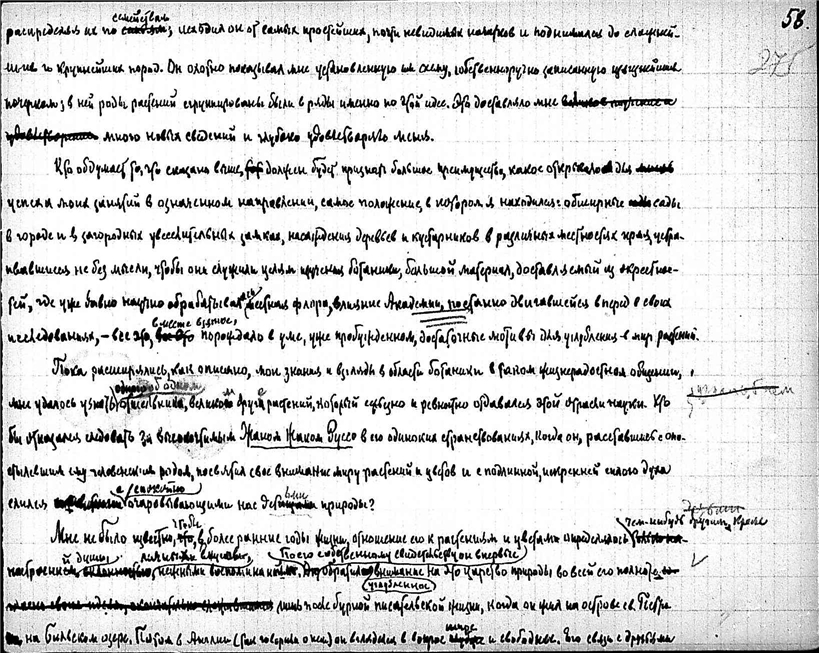 58.
275
распределяя их по семействам; исходил он от самых простейших, почти невидимых ... и поднимался до сложней-
ших и крупнейших пород. Он охотно показывал мне установленную им схему, собственноручно записанную изящнейшим
почерком; в ней роды растений сгруппированы были в ряды именно по этой идее. Это доставляло мне
много новых сведений и глубоко удовлетворяло меня.
Кто обдумает то, что сказано выше, должен будет признать большое преимущество, какое открывало для
успеха моих занятий в означенном направлении, самое положение, в котором я находился: обширные сады
в городе и в загородных увеселительных замках, насаждения деревьев и кустарников в различных местностях края, устра-
ивавшиеся не без мысли, чтобы они служили целям изучения ботаники, большой материал, доставляемый из окрестнос-
тей, где уже давно научно обрабатывалась местная флора, влияние Академии, постоянно двигавшейся вперед в своих
исследованиях, – все это, вместе взятое, порождало в уме, уже пробужденном, достаточные мотивы для углубления в мир растений.
Пока расширялись, как описано, мои знания и взгляды в области ботаники в таком жизнерадостном общении,
мне удалось узнать об одном отшельнике, великом друге растений, который серьезно и ревностно отдавался этой отрасли науки. Кто
бы отказался следовать за высокочтимым Жаном Жаком Руссо в его одиноких странствованиях, когда он, расставшись с опо-
стылевшим ему человеческим родом, посвятил свое внимание миру растений и цветов и с подлинной, искренней силою духа
слился с спокойно очаровывающими нас детьми природы?
Мне не было известно, чтобы в более ранние годы жизни, отношение его к растениям и цветам определялось чем-нибудь другим, кроме
настроений души, личными вкусами, нежными воспоминаниями. По его собственному свидетельству он впервые обратил углубленное внимание на это царство природы во всей его полноте
лишь после бурной писательской жизни, когда он жил на острове св. Петра
на Бильском озере. Потом в Англии (там говорили о нем) он вгляделся в вопрос шире и свободнее. Его связь с друзьями